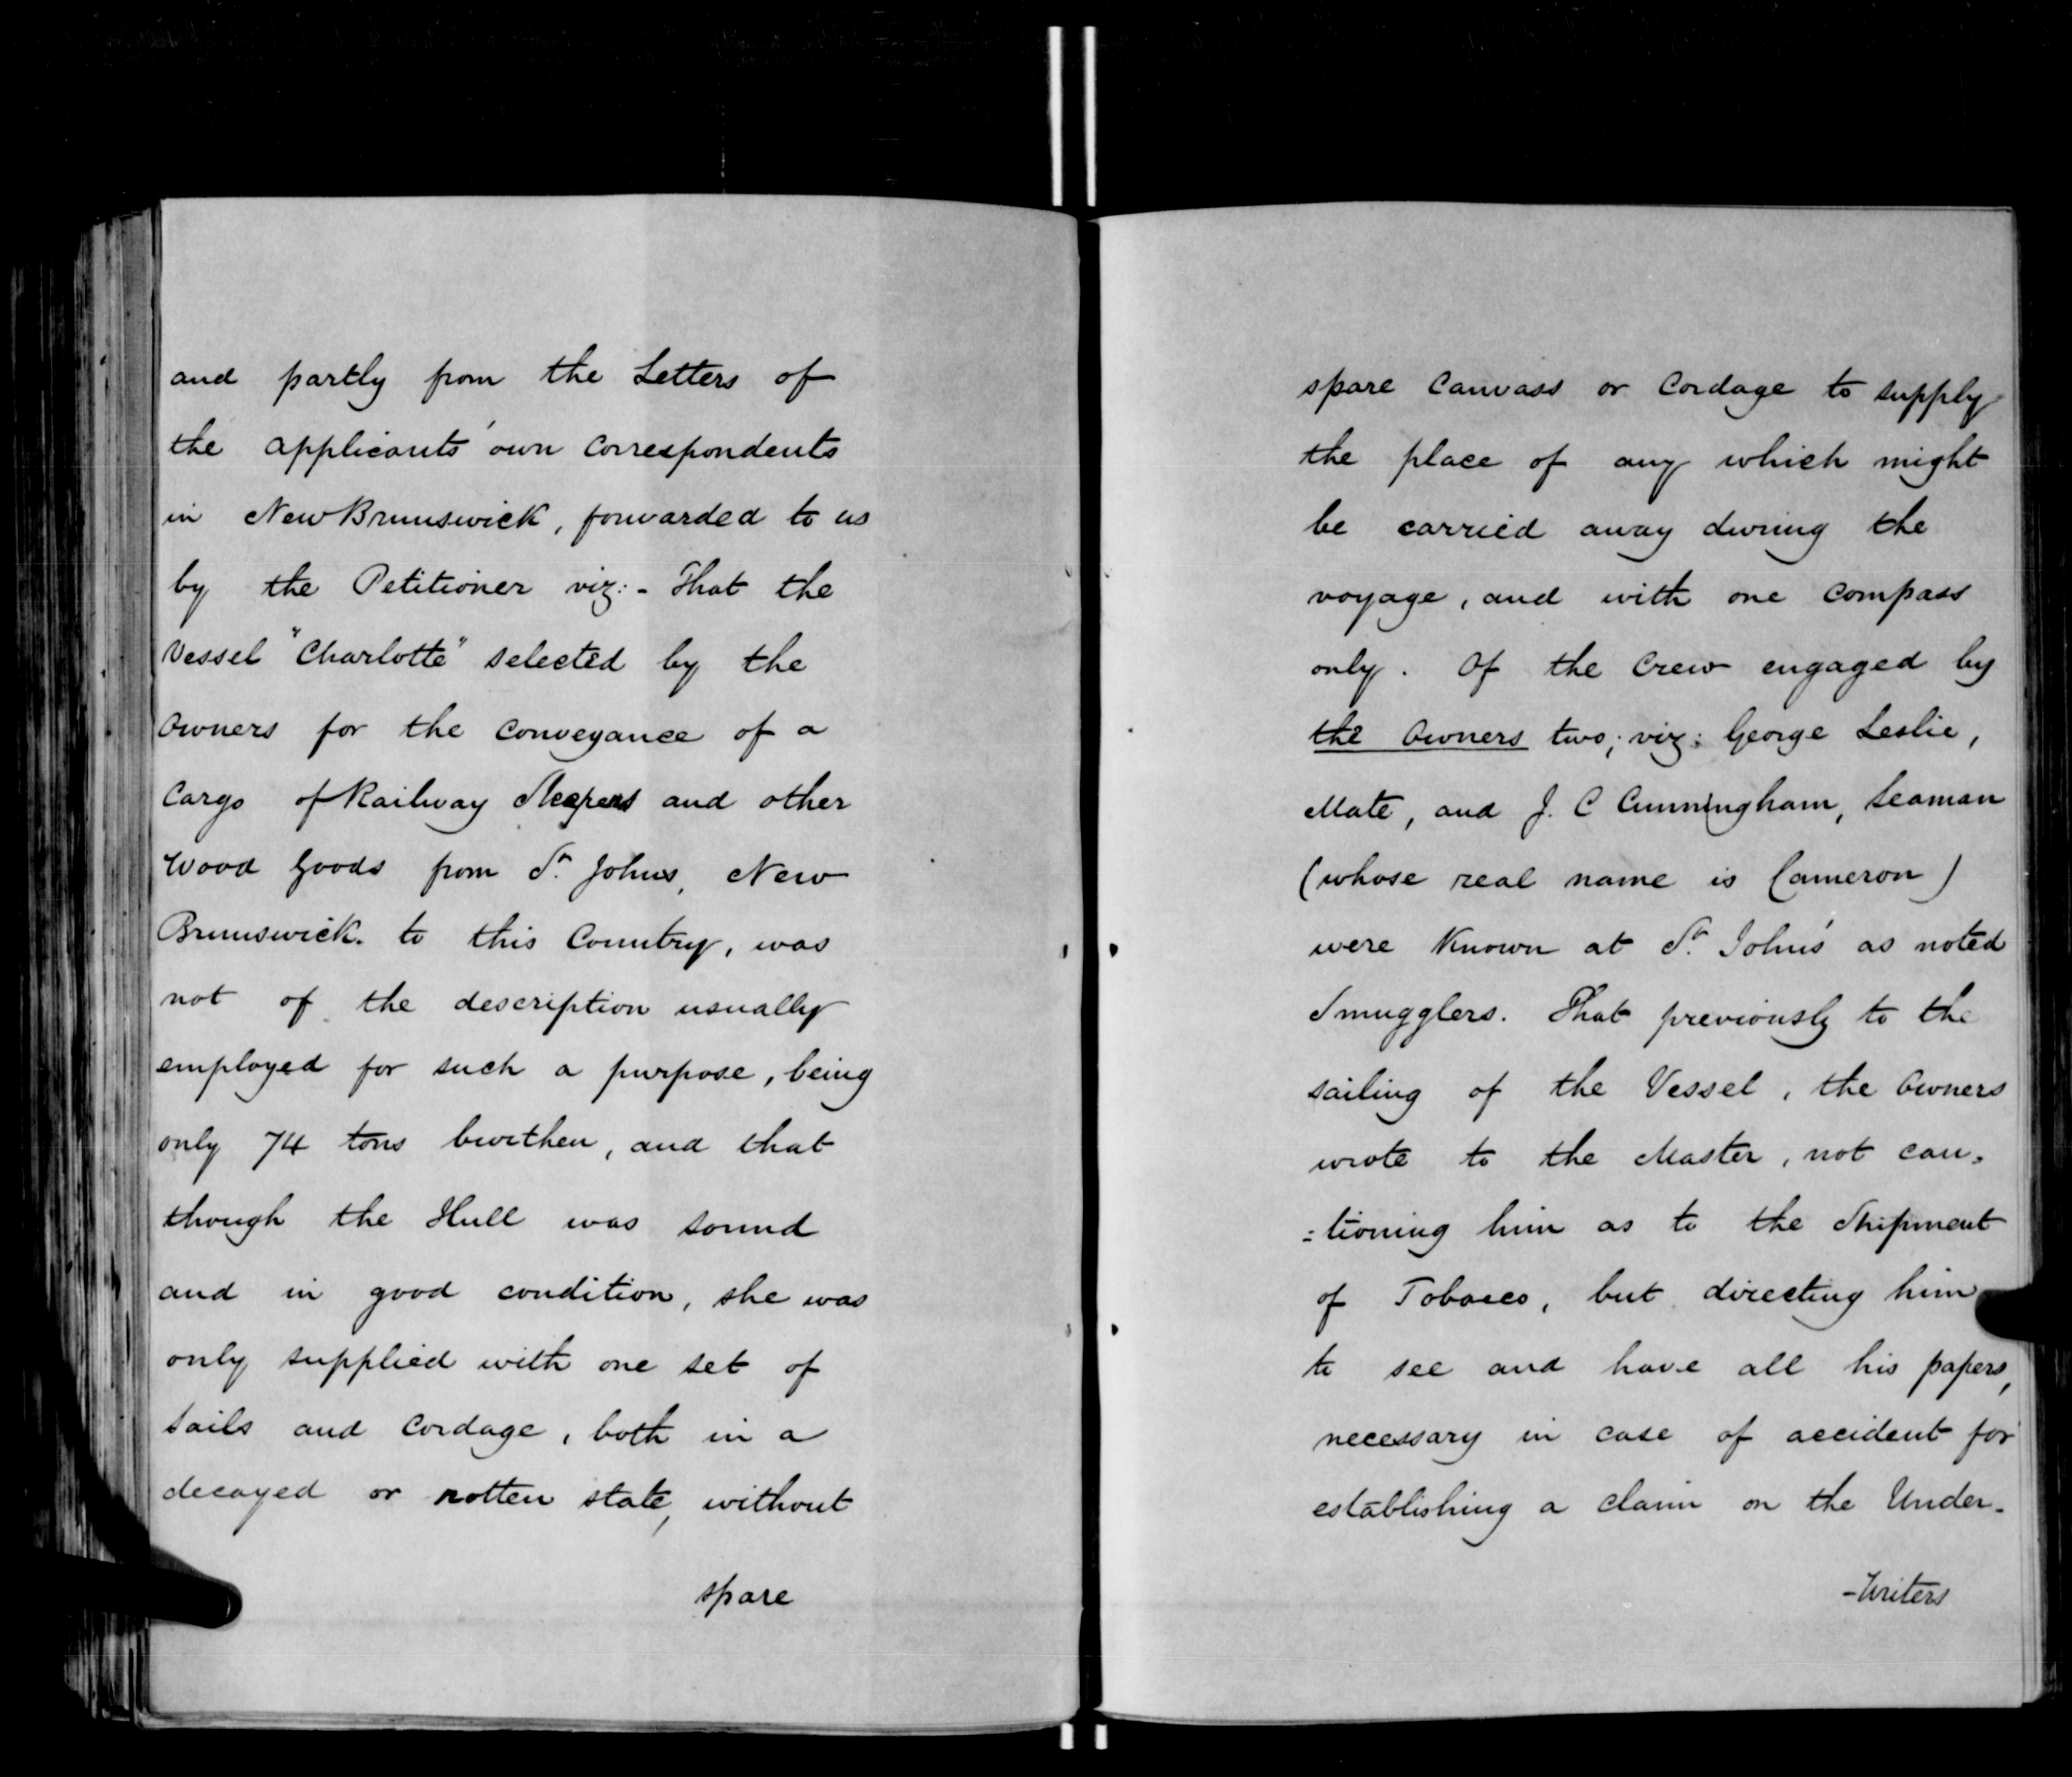 and partly from the Letters of
the applicants' own Correspondents
in New Brunswick, forwarded to us
by the Petitioner viz:- That the
Vessel "Charlotte" selected by the
Owners for the Conveyance of a
Cargo of Railway Sleepers and other
Wood Goods from St. Johns, New
Brunswick. to this Country, was
not of the description usually
employed for such a purpose, being
only 74 tons burthen, and that
though the Hull was sound
and in good condition, she was
only supplied with one set of
Sails and Cordage, both in a
decayed or rotten state, without
spare
spare Canvass or Cordage to supply
the place of any which might
be carried away during the
voyage, and with one Compass
only. Of the Crew engaged by
the Owners two; viz: George Leslie,
Mate, and J. C Cunningham, Seaman
(whose real name is Cameron)
were Known at St. John's as noted
Smugglers. That previously to the
sailing of the Vessel, the Owners
wrote to the Master, not cau-
-tioning him as to the Shipment
of Tobacco, but directing him
to see and have all his papers,
necessary in case of accident for
establishing a claim on the Under-
-Writers